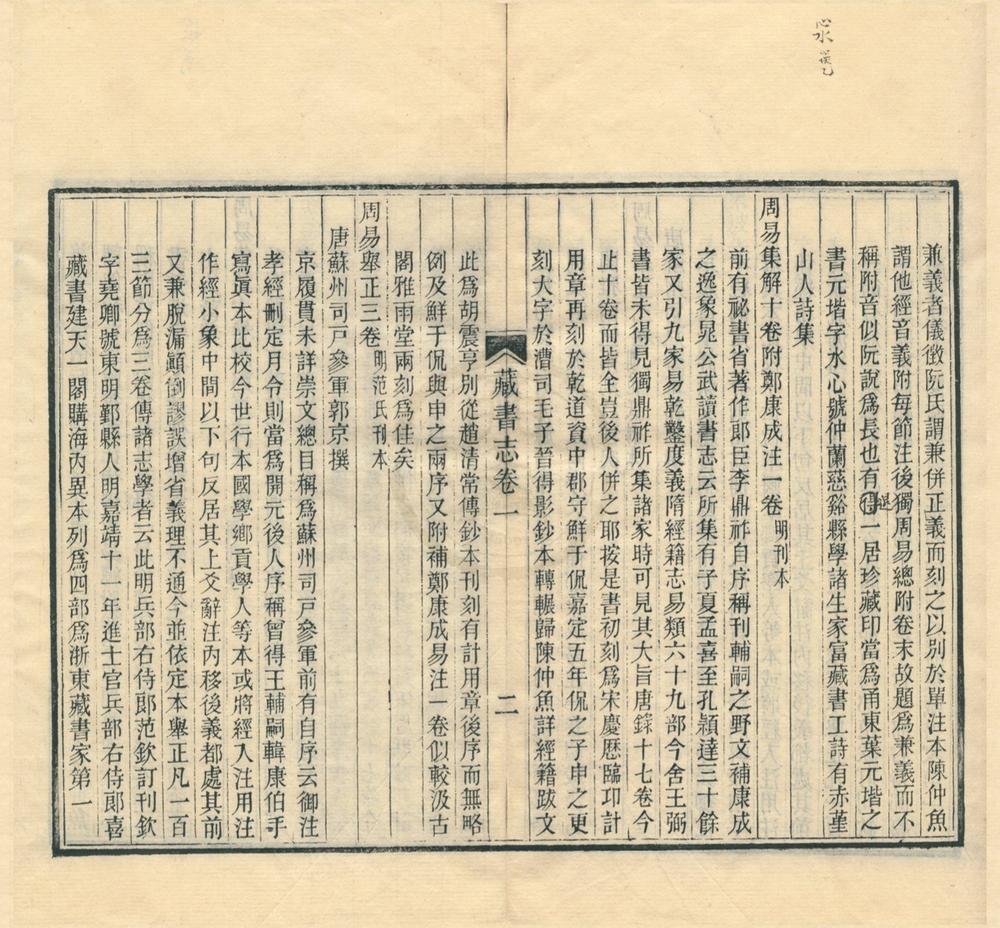 兼義者儀徵阮氏謂兼併正義而刻之以別於單注本陳仲魚
謂他經音義附每節注後獨周易總附卷末故題爲兼義而不
稱附音似阮說爲長也有得一居珍藏印當爲甬東葉元堦之
書元堦字水心號仲蘭慈谿縣學諸生家富藏書工詩有赤堇
山人詩集
周易集解十卷附鄭康成注一卷 明刊本
前有祕書省著作郎臣李鼎祚自序稱刊輔嗣之野文補康成
之逸象晁公武讀書志云所集有子夏孟喜至孔穎達三十餘
家又引九家易乾鑿度義隋經籍志易類六十九部今舍王弼
書皆未得見獨鼎祚所集諸家時可見其大旨唐錄十七卷今
止十卷而皆全豈後人併之耶按是書初刻爲宋慶歷臨邛計
用章再刻於乾道資中郡守鮮于侃嘉定五年侃之子申之更
刻大字於漕司毛子晉得影鈔本轉輾歸陳仲魚詳經籍跋文
此爲胡震亨別從趙清常傳鈔本刊刻有計用章後序而無略
例及鮮于侃與申之兩序又附補鄭康成易注一卷似較汲古
閣雅雨堂兩刻爲佳矣
周易舉正三卷 明范氏刊本
唐蘇州司戸參軍郭京撰
京履貫未詳崇文總目稱爲蘇州司戸參軍前有自序云御注
孝經刪定月令則當爲開元後人序稱曾得王輔嗣韓康伯手
寫眞本比校今世行本國學鄉貢學人等本或將經入注用注
作經小象中間以下句反居其上爻辭注內移後義都處其前
又兼脫漏顚倒謬誤增省義理不通今並依定本舉正凡一百
三節分爲三卷傳諸志學者云此明兵部右侍郎范欽訂刊欽
字堯卿號東明鄞縣人明嘉靖十一年進士官兵部右侍郎喜
藏書建天一閣購海內異本列爲四部爲浙東藏書家第一
藏書志卷一
二